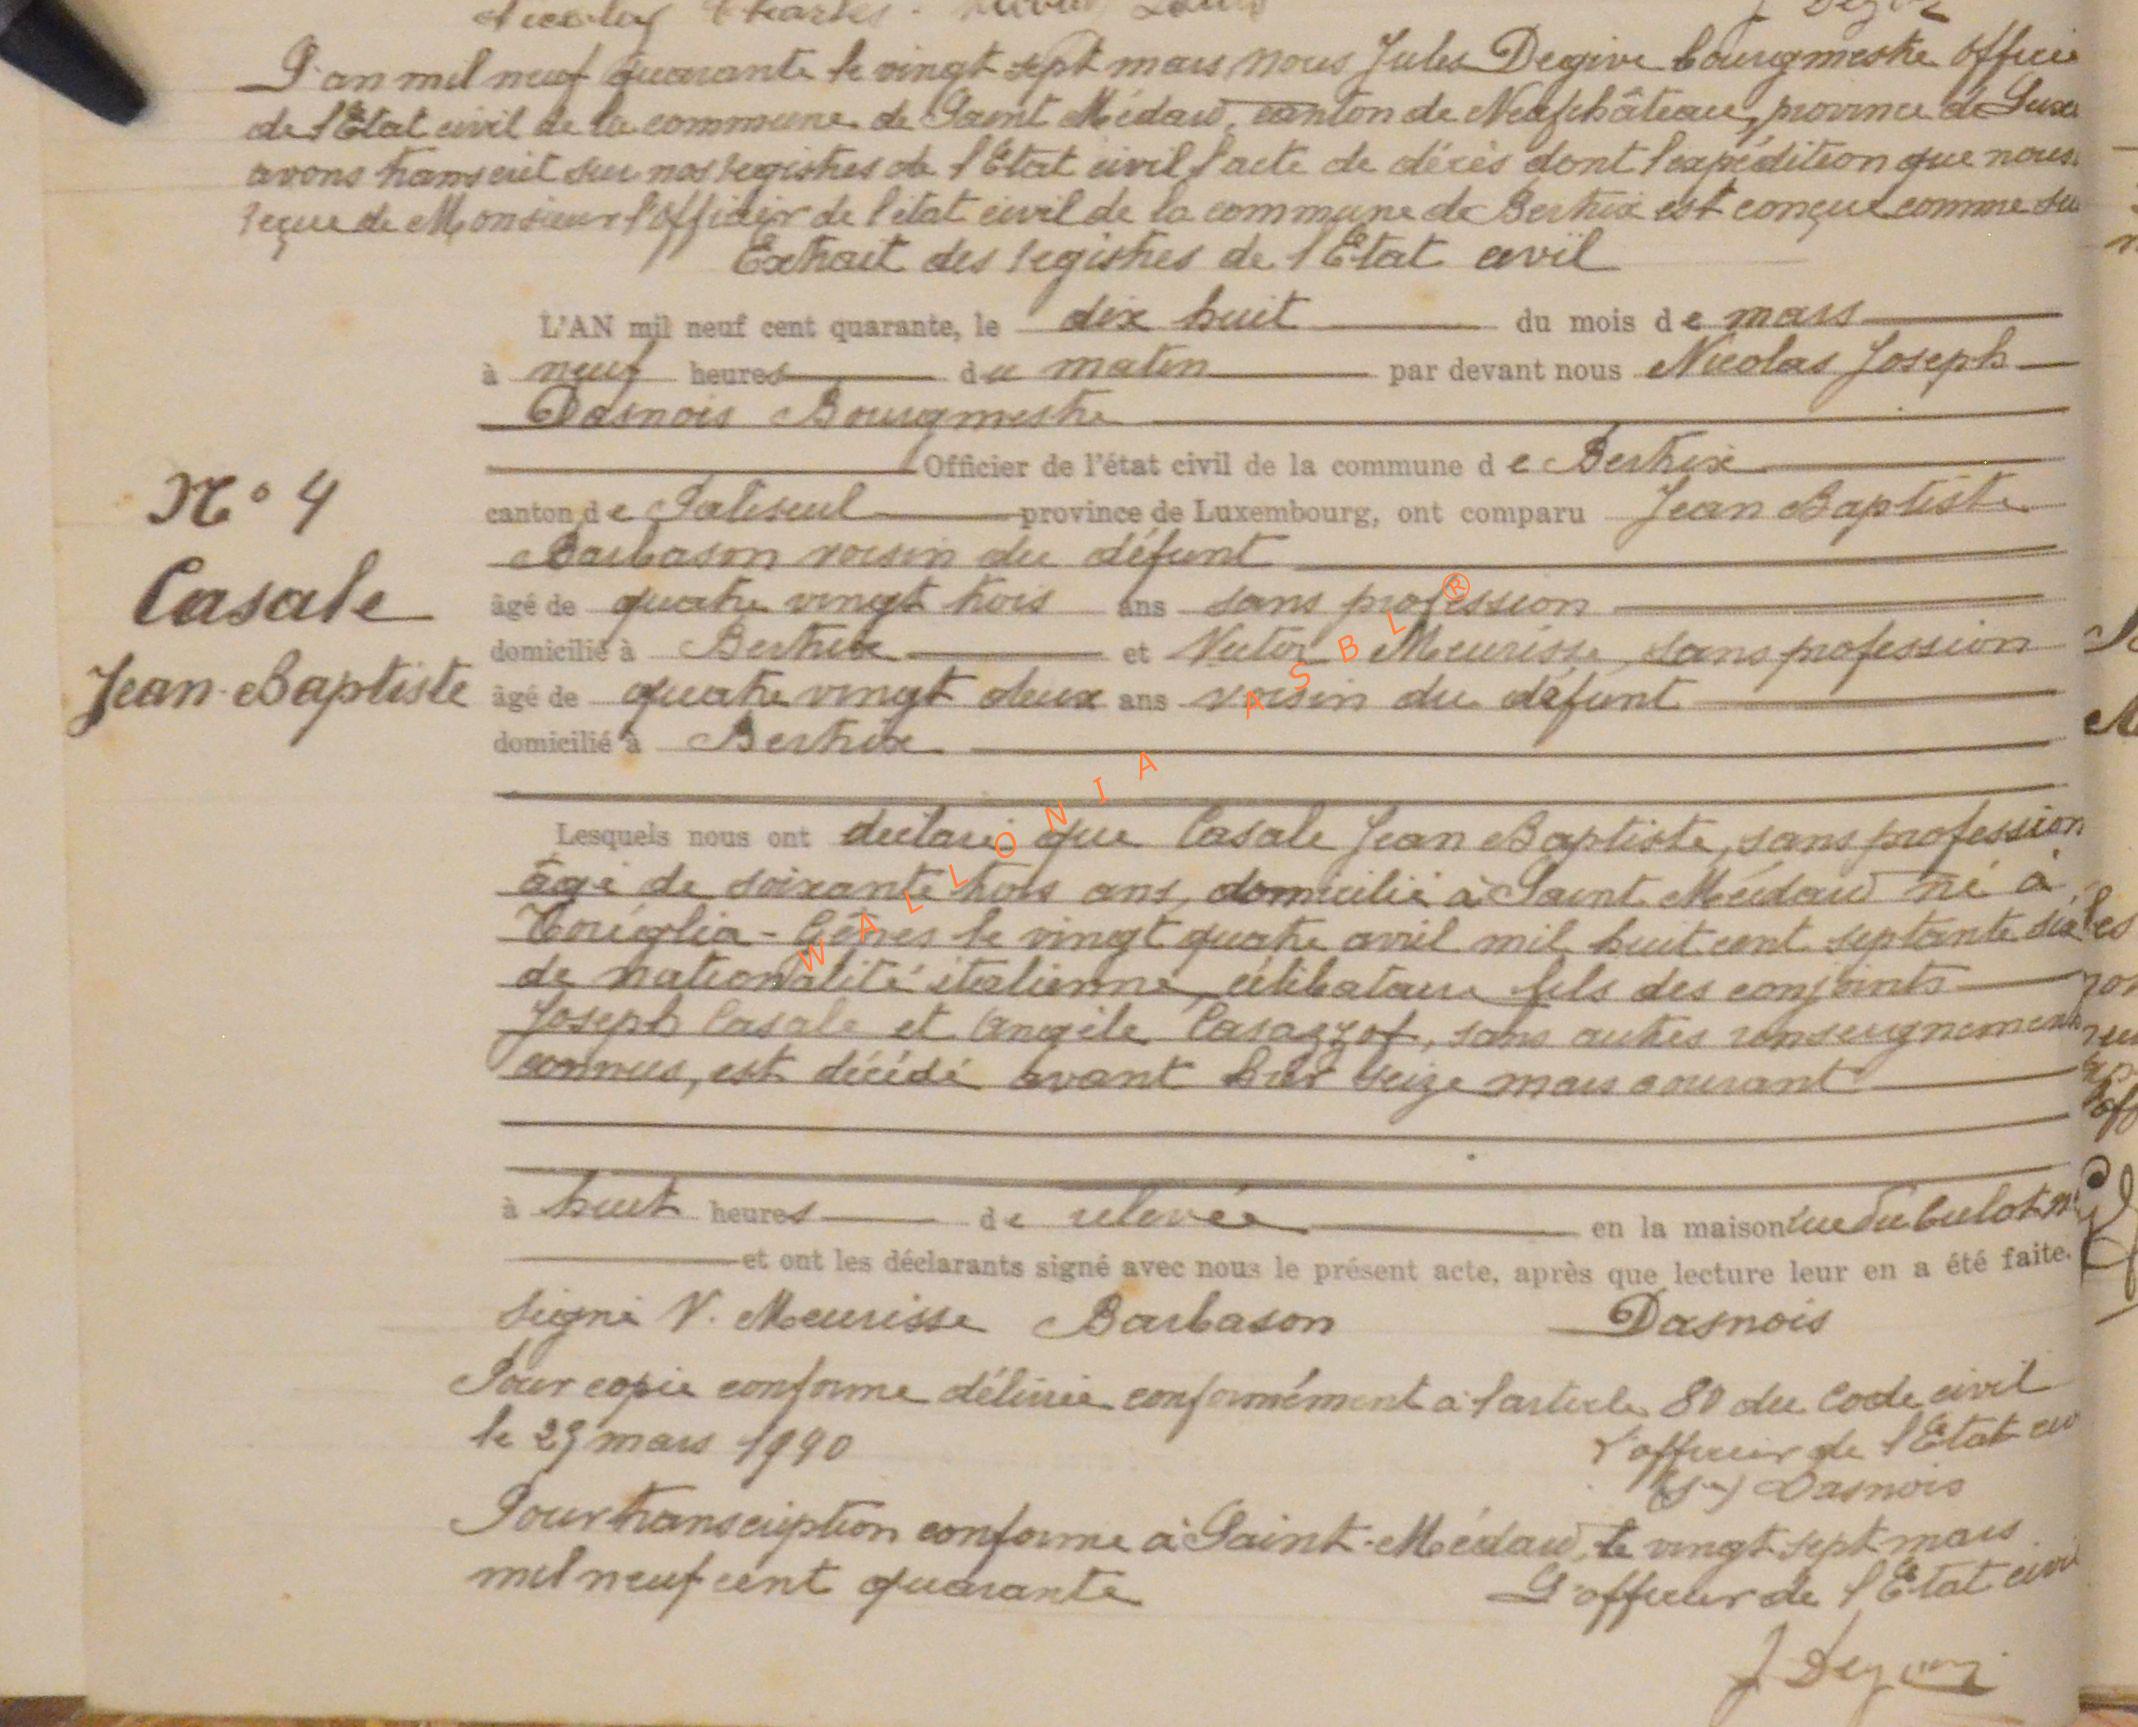 Nicolay Charles.
L'an mil neuf quarante le vingt sept mars, nous Jules Degive bourgmestre Officie
de l'Etat civil de la commune de Saint Médard, canton de Neufchâteau, province de Luxe
avons transcrit sur nos registres de l'Etat civil l'acte de décès dont l'expédition que nous
reçue de Monsieur l'Officier de l'état civil de la commune de Bertrix est conçue comme su
Extrait des registres de l'Etat civil
L'AN mil neuf cent quarante, le dix huit du mois de mars
à neuf heures du matin par devant nous Nicolas Joseph
Dasnois Bourgmestre
Officier de l'état civil de la commune de Bertrix
N° 4
canton de Paliseul province de Luxembourg, ont comparu Jean Baptiste
Barbason voisin du défunt
Casale
âgé de quatre vingt trois ans sans profession
domicilié à Bertrix et Victor Meurisse, sans profession
Jean-Baptiste
âgé de quatre vingt deux ans voisin du défunt
domicilié à Bertrix
WALLONIA ASBL ®
Lesquels nous ont déclaré que Casale Jean Baptiste, sans profession
âgé de soixante trois ans, domicilié à Saint Médard né à
Toriglia - Gênes le vingt quatre avril mil huit cent septante six
de nationalité italienne, célibataire fils des conjoints
Joseph Casale et Angèle Casazzof, sans autres renseignements
connus, est décédé avant hier seize mars courant
à huit heures de relevée en la maison rue du Culot n°
et ont les déclarants signé avec nous le présent acte, après que lecture leur en a été faite.
Signé V. Meurisse Barbason Dasnois
Pour copie conforme délivrée conformément à l'article 80 du Code civil
le 23 mars 1940 L'officier de l'Etat civ
(s-) Dasnois
Pour transcription conforme à Saint-Médard, le vingt sept mars
mil neuf cent quarante L'officier de l'Etat civil
J Degive